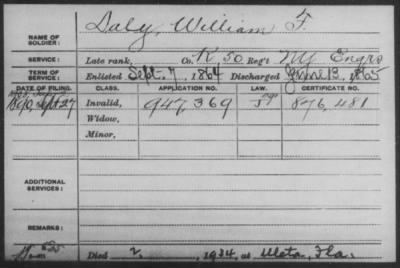 NAME OF SOLDIER: Daly, William F.
SERVICE: Late rank, Co. K, 50 Reg't NY Engrs
TERM OF SERVICE: Enlisted Sept. 7, 1864 Discharged June 13, 1865
DATE OF FILING. CLASS. APPLICATION NO. LAW. CERTIFICATE NO.
1890, Sept 27 Invalid, 947,369 876,481
Widow,
Minor,
ADDITIONAL SERVICES:
REMARKS:
Died 2, 1934, at Uleta, Fla.